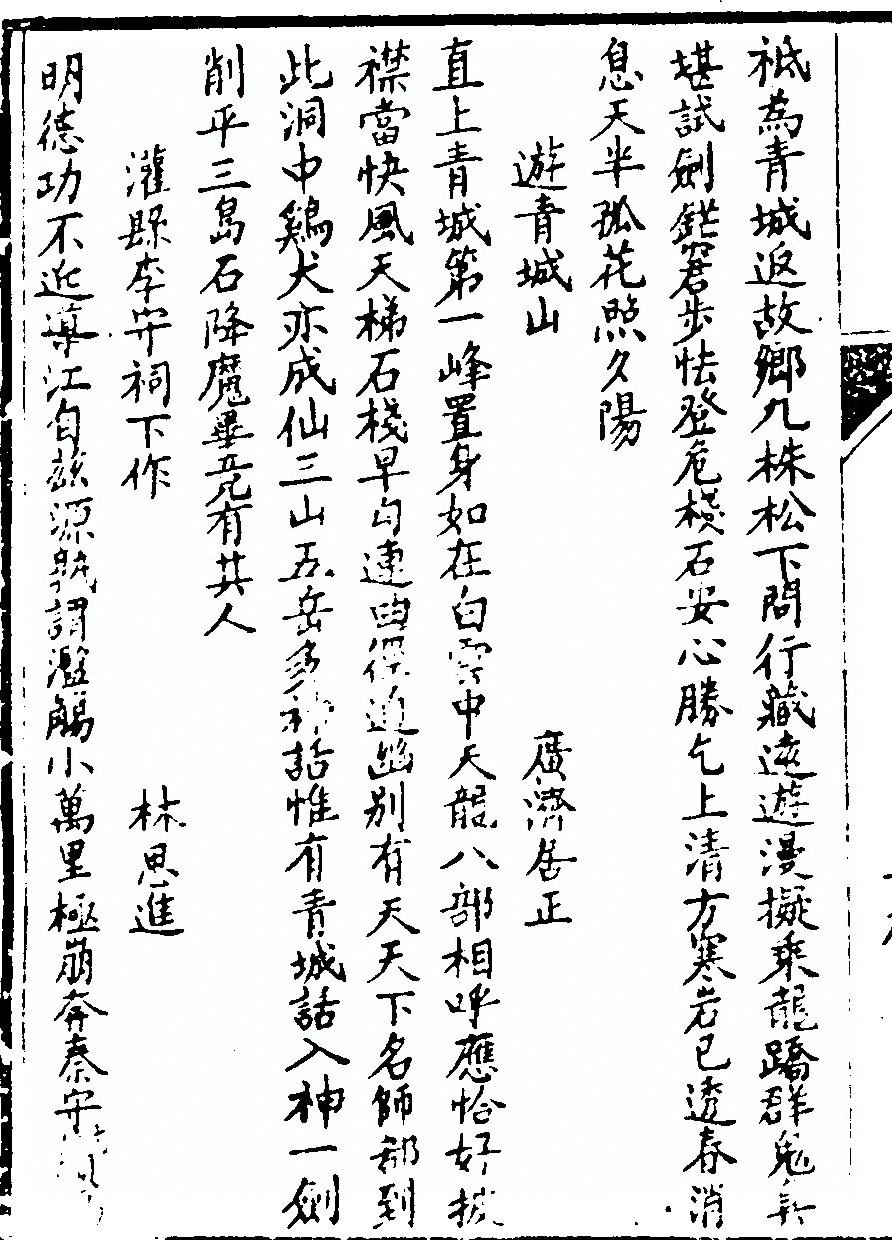 祗為青城返故鄉九株松下問行藏遠遊漫擬乘龍蹻群鬼
堪試劍鋩窘步怯登危棧石安心勝乞上清方寒岩已透春消
息天半孤花照夕陽
遊青城山
廣濟居正
直上青城第一峰置身如在白雲中天龍八部相呼應恰好披
襟當快風天梯石棧早勾連曲徑通幽別有天天下名師都到
此洞中鷄犬亦成仙三山五岳多神話惟有青城話入神一劍
削平三島石降魔畢竟有其人
灌縣李守祠下作
林思進
明德功不近導江自茲源孰謂濫觴小萬里極崩奔秦守